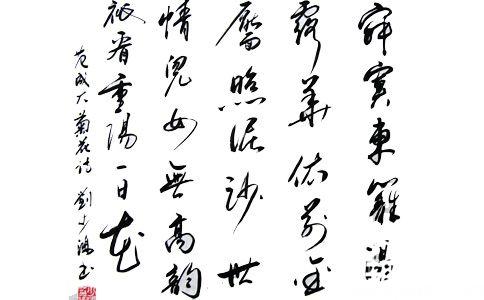 寂寞東籬濕
露華依前金
靨照泥沙世
情兒女無高韻
祇看重陽一日花
范成大菊花詩 劉少書